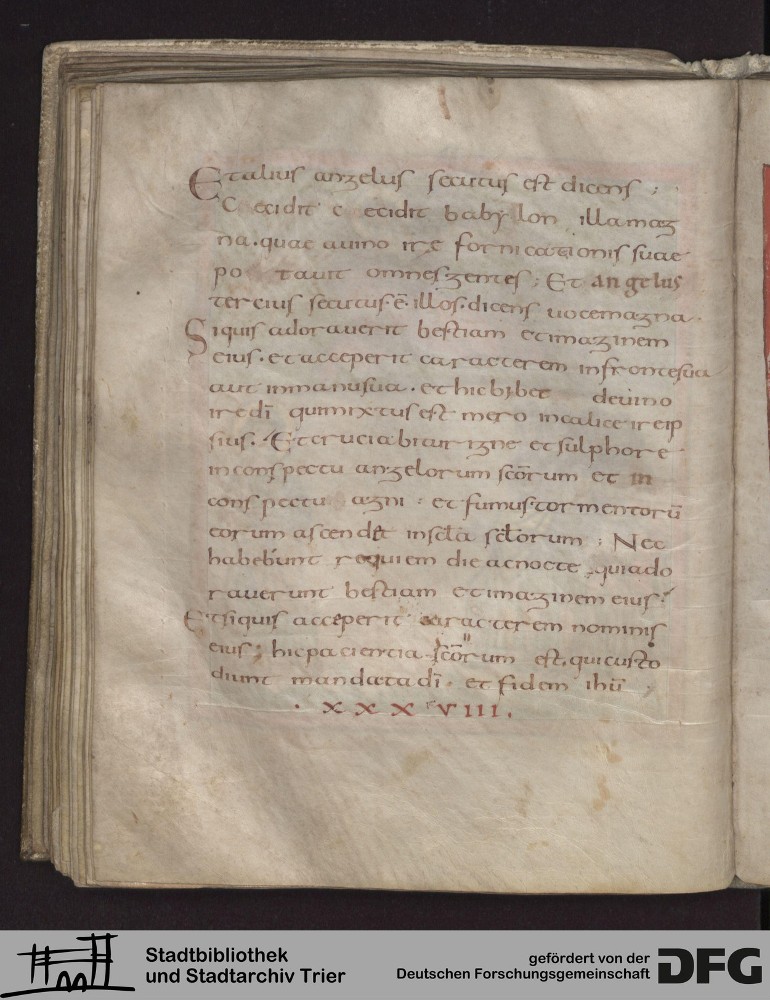 Et alius angelus secutus est dicens ;
C ecidit c ecidit babylon illa mag
na. quae a uino irę fornicationis suae
po tauit omnes gentes ; Et angelus
tercius secutus ē illos. dicens uoce magna.
Siquis adorauerit bestiam et imaginem
eius. et acceperit caracterem in fronte sua
aut in manu sua. et hic bibet de uino
irę dī qui mixtus est mero in calice irę ip
sius. Et cruciabitur igne et sulphore
in conspectu angelorum scōrum et in
conspectu agni : et fumus tormentorū
eorum ascendet in scla sclorum : Nec
habebunt requiem die ac nocte, qui ado
rauerunt bestiam et imaginem eius.
Et siquis acceperit caracterem nominis
eius ; hic paciencia scōrum est, qui custo
diunt mandata dī. et fidem ihū ;
. XXXVIII.
Stadtbibliothek
und Stadtarchiv Trier
gefördert von der
Deutschen Forschungsgemeinschaft
DFG